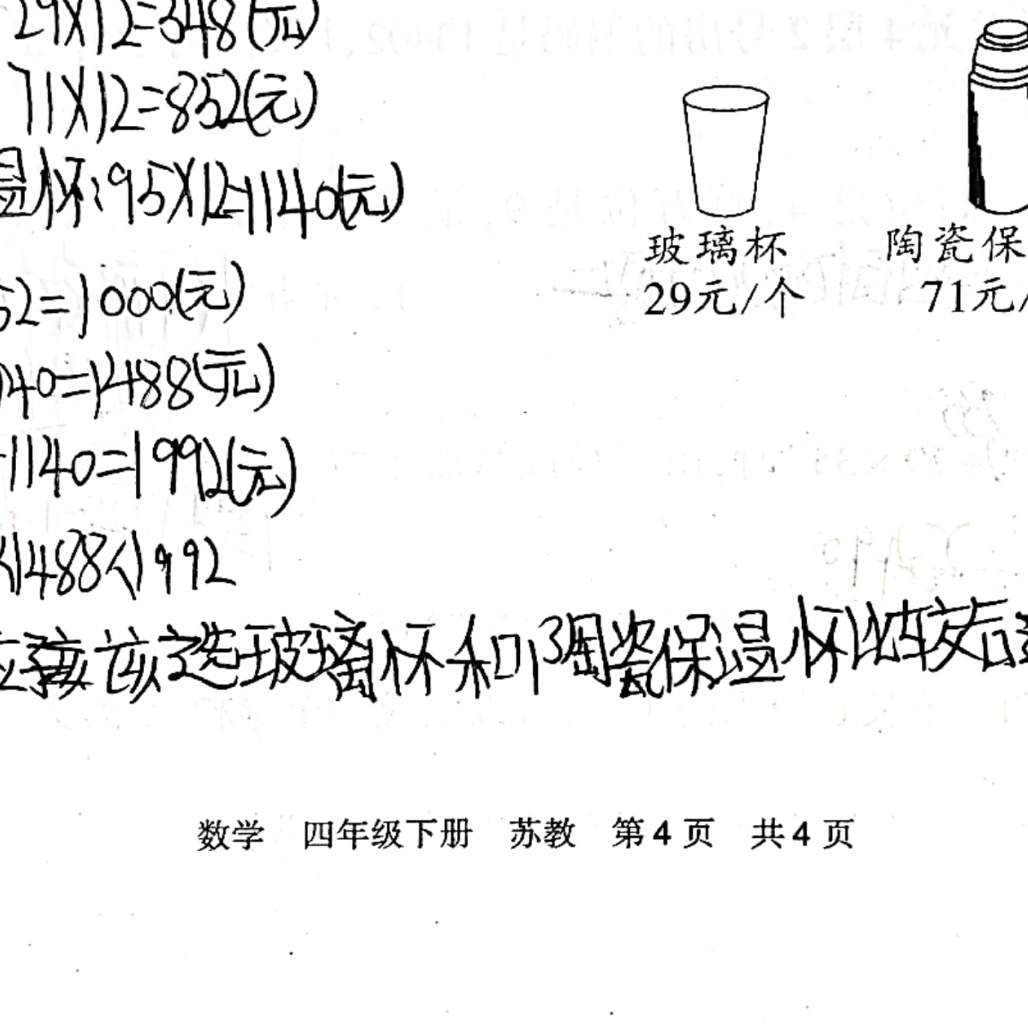 29×12=348(元)
71×12=852(元)
温杯:95×12=1140(元)
52=1000(元)
140=1488(元)
-1140=1992(元)
<1488<1992
玻璃杯和陶瓷保温杯比较后
玻璃杯
29元/个
陶瓷保
71元/
数学 四年级下册 苏教 第4页 共4页